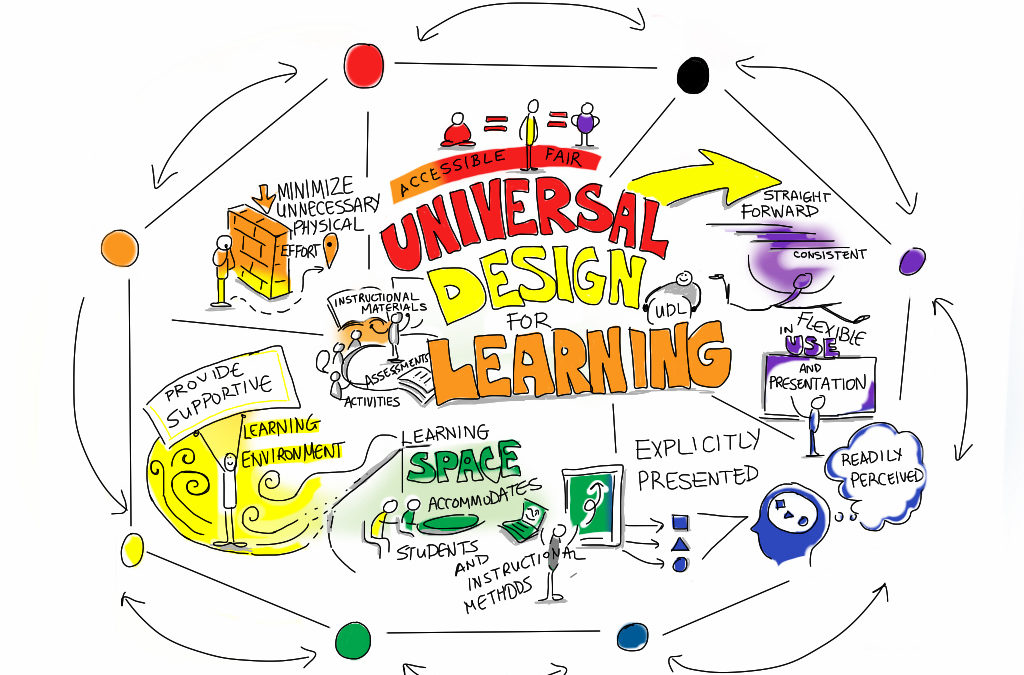 ACCESSIBLE FAIR
UNIVERSAL
DESIGN
FOR
LEARNING
UDL
STRAIGHT
FORWARD
CONSISTENT
IN FLEXIBLE
USE
AND
PRESENTATION
READILY
PERCEIVED
EXPLICITLY
PRESENTED
LEARNING
SPACE
ACCOMMODATES
STUDENTS
AND
INSTRUCTIONAL
METHODS
PROVIDE
SUPPORTIVE
LEARNING
ENVIRONMENT
INSTRUCTIONAL
MATERIALS
ASSESSMENTS
ACTIVITIES
MINIMIZE
UNNECESSARY
PHYSICAL
EFFORT